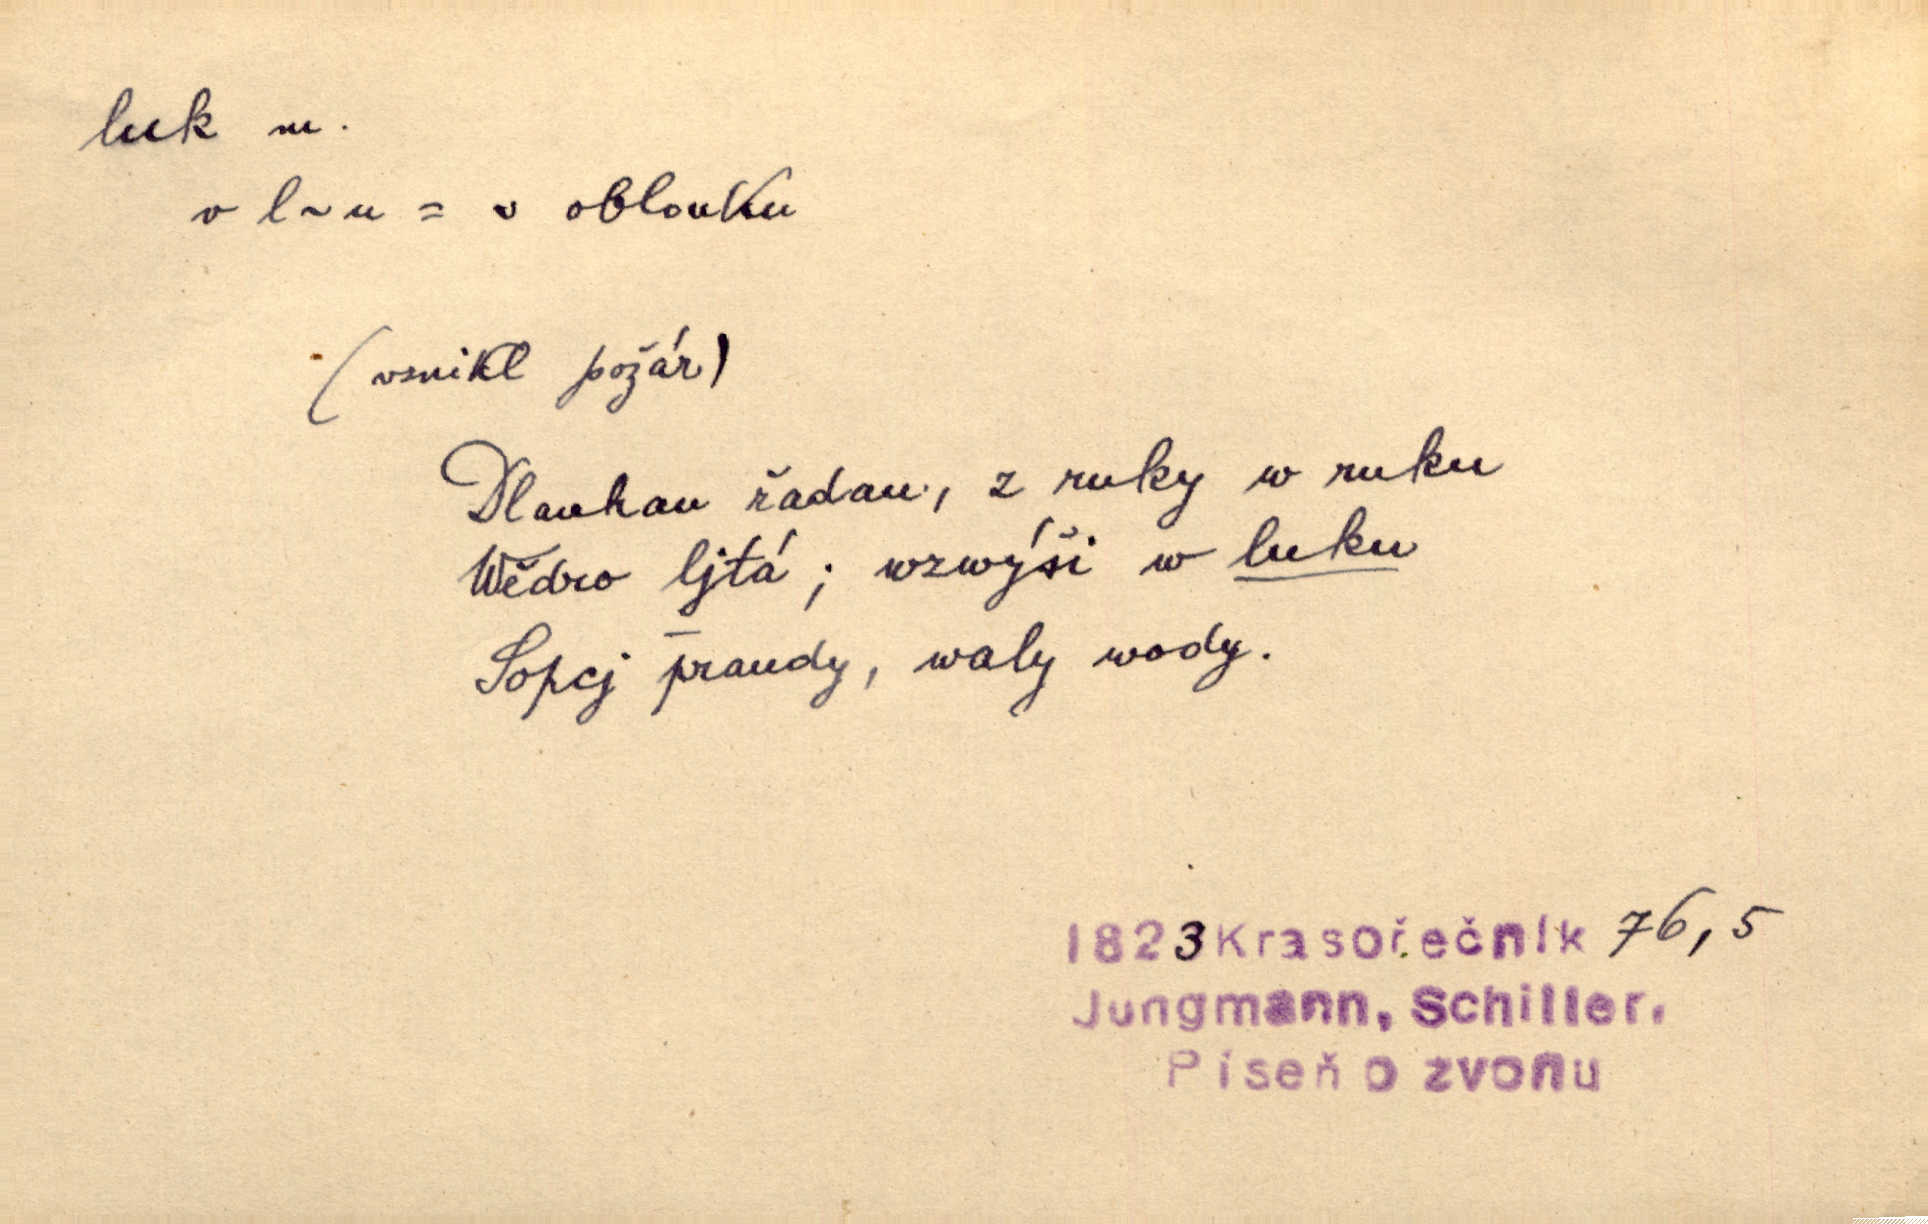 luk m.
v l~u = v oblouku
(vznikl požár)
Dlauhau řadau, z ruky w ruku
Wědro ljtá; wzwýši w luku
Sopcj praudy, waly wody.
1823 Krasořečník 76,5
Jungmann, Schiller.
Píseň o zvonu